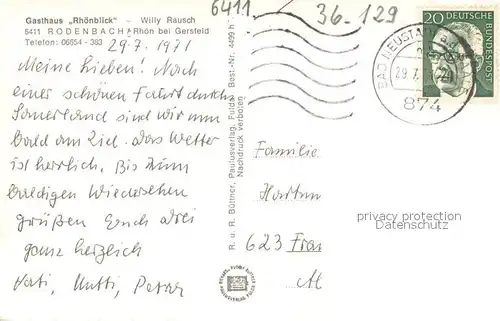 Gasthaus „Rhönblick" - Willy Rausch
6411 RODENBACH/Rhön bei Gersfeld
Telefon: 06654 - 383
29.7.1971
Meine Lieben! Nach
einer schönen Fahrt durchs
Sauerland sind wir nun
bald am Ziel. Das Wetter
ist herrlich. Bis zum
baldigen Wiedersehen
grüßen Euch drei
ganz herzlich
Kati, Mutti, Peter
R. u. R. Büttner, Paulusverlag, Fulda, Best.-Nr. 4499 h
Nachdruck verboten
6411
36-129
20 DEUTSCHE
BUNDESPOST
BAD NEUSTADT a.d. SAALE
29.7.71
874
Familie
Hartun
623 Fran
privacy protection
Datenschutz